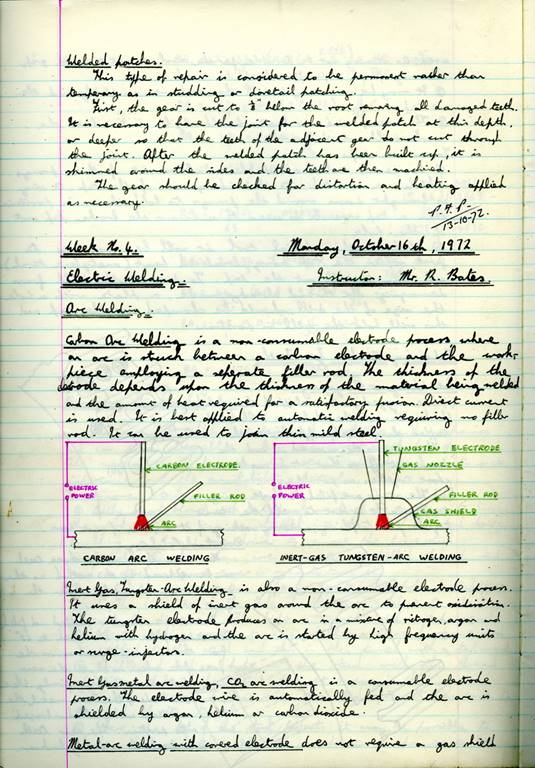 Welded patches.
This type of repair is considered to be permanent rather than
temporary as in studding or dovetail patching.
First, the gear is cut to ⅛" below the root running all damaged teeth.
It is necessary to have the joint for the welded patch at this depth,
or deeper so that the teeth of the adjacent gear do not cut through
the joint. After the welded patch has been built up, it is
shimmed around the sides and the teeth are then machined.
The gear should be checked for distortion and heating applied
as necessary.
13-10-72.
Week No. 4. Monday, October 16th, 1972
Electric Welding. Instructor: Mr. R. Bates.
Arc Welding.
Carbon Arc Welding is a non-consumable electrode process, where
an arc is struck between a carbon electrode and the work-
piece employing a seperate filler rod. The thickness of the
electrode depends upon the thickness of the material being welded
and the amount of heat required for a satisfactory fusion. Direct current
is used. It is best applied to automatic welding requiring no filler
rod. It can be used to join thin mild steel.
CARBON ELECTRODE.
ELECTRIC POWER
FILLER ROD
ARC
CARBON ARC WELDING
TUNGSTEN ELECTRODE
GAS NOZZLE
ELECTRIC POWER
FILLER ROD
GAS SHIELD
ARC
INERT-GAS TUNGSTEN-ARC WELDING
Inert Gas, Tungsten-Arc Welding is also a non-consumable electrode process.
It uses a shield of inert gas around the arc to prevent oxidisition.
The tungsten electrode produces an arc in a mixture of nitrogen, argon and
helium with hydrogen and the arc is started by high frequency units
or surge-injectors.
Inert Gas metal arc welding, CO₂ arc welding is a consumable electrode
process. The electrode wire is automatically fed and the arc is
shielded by argon, helium or carbon dioxide.
Metal-arc welding with covered electrode does not require a gas shield